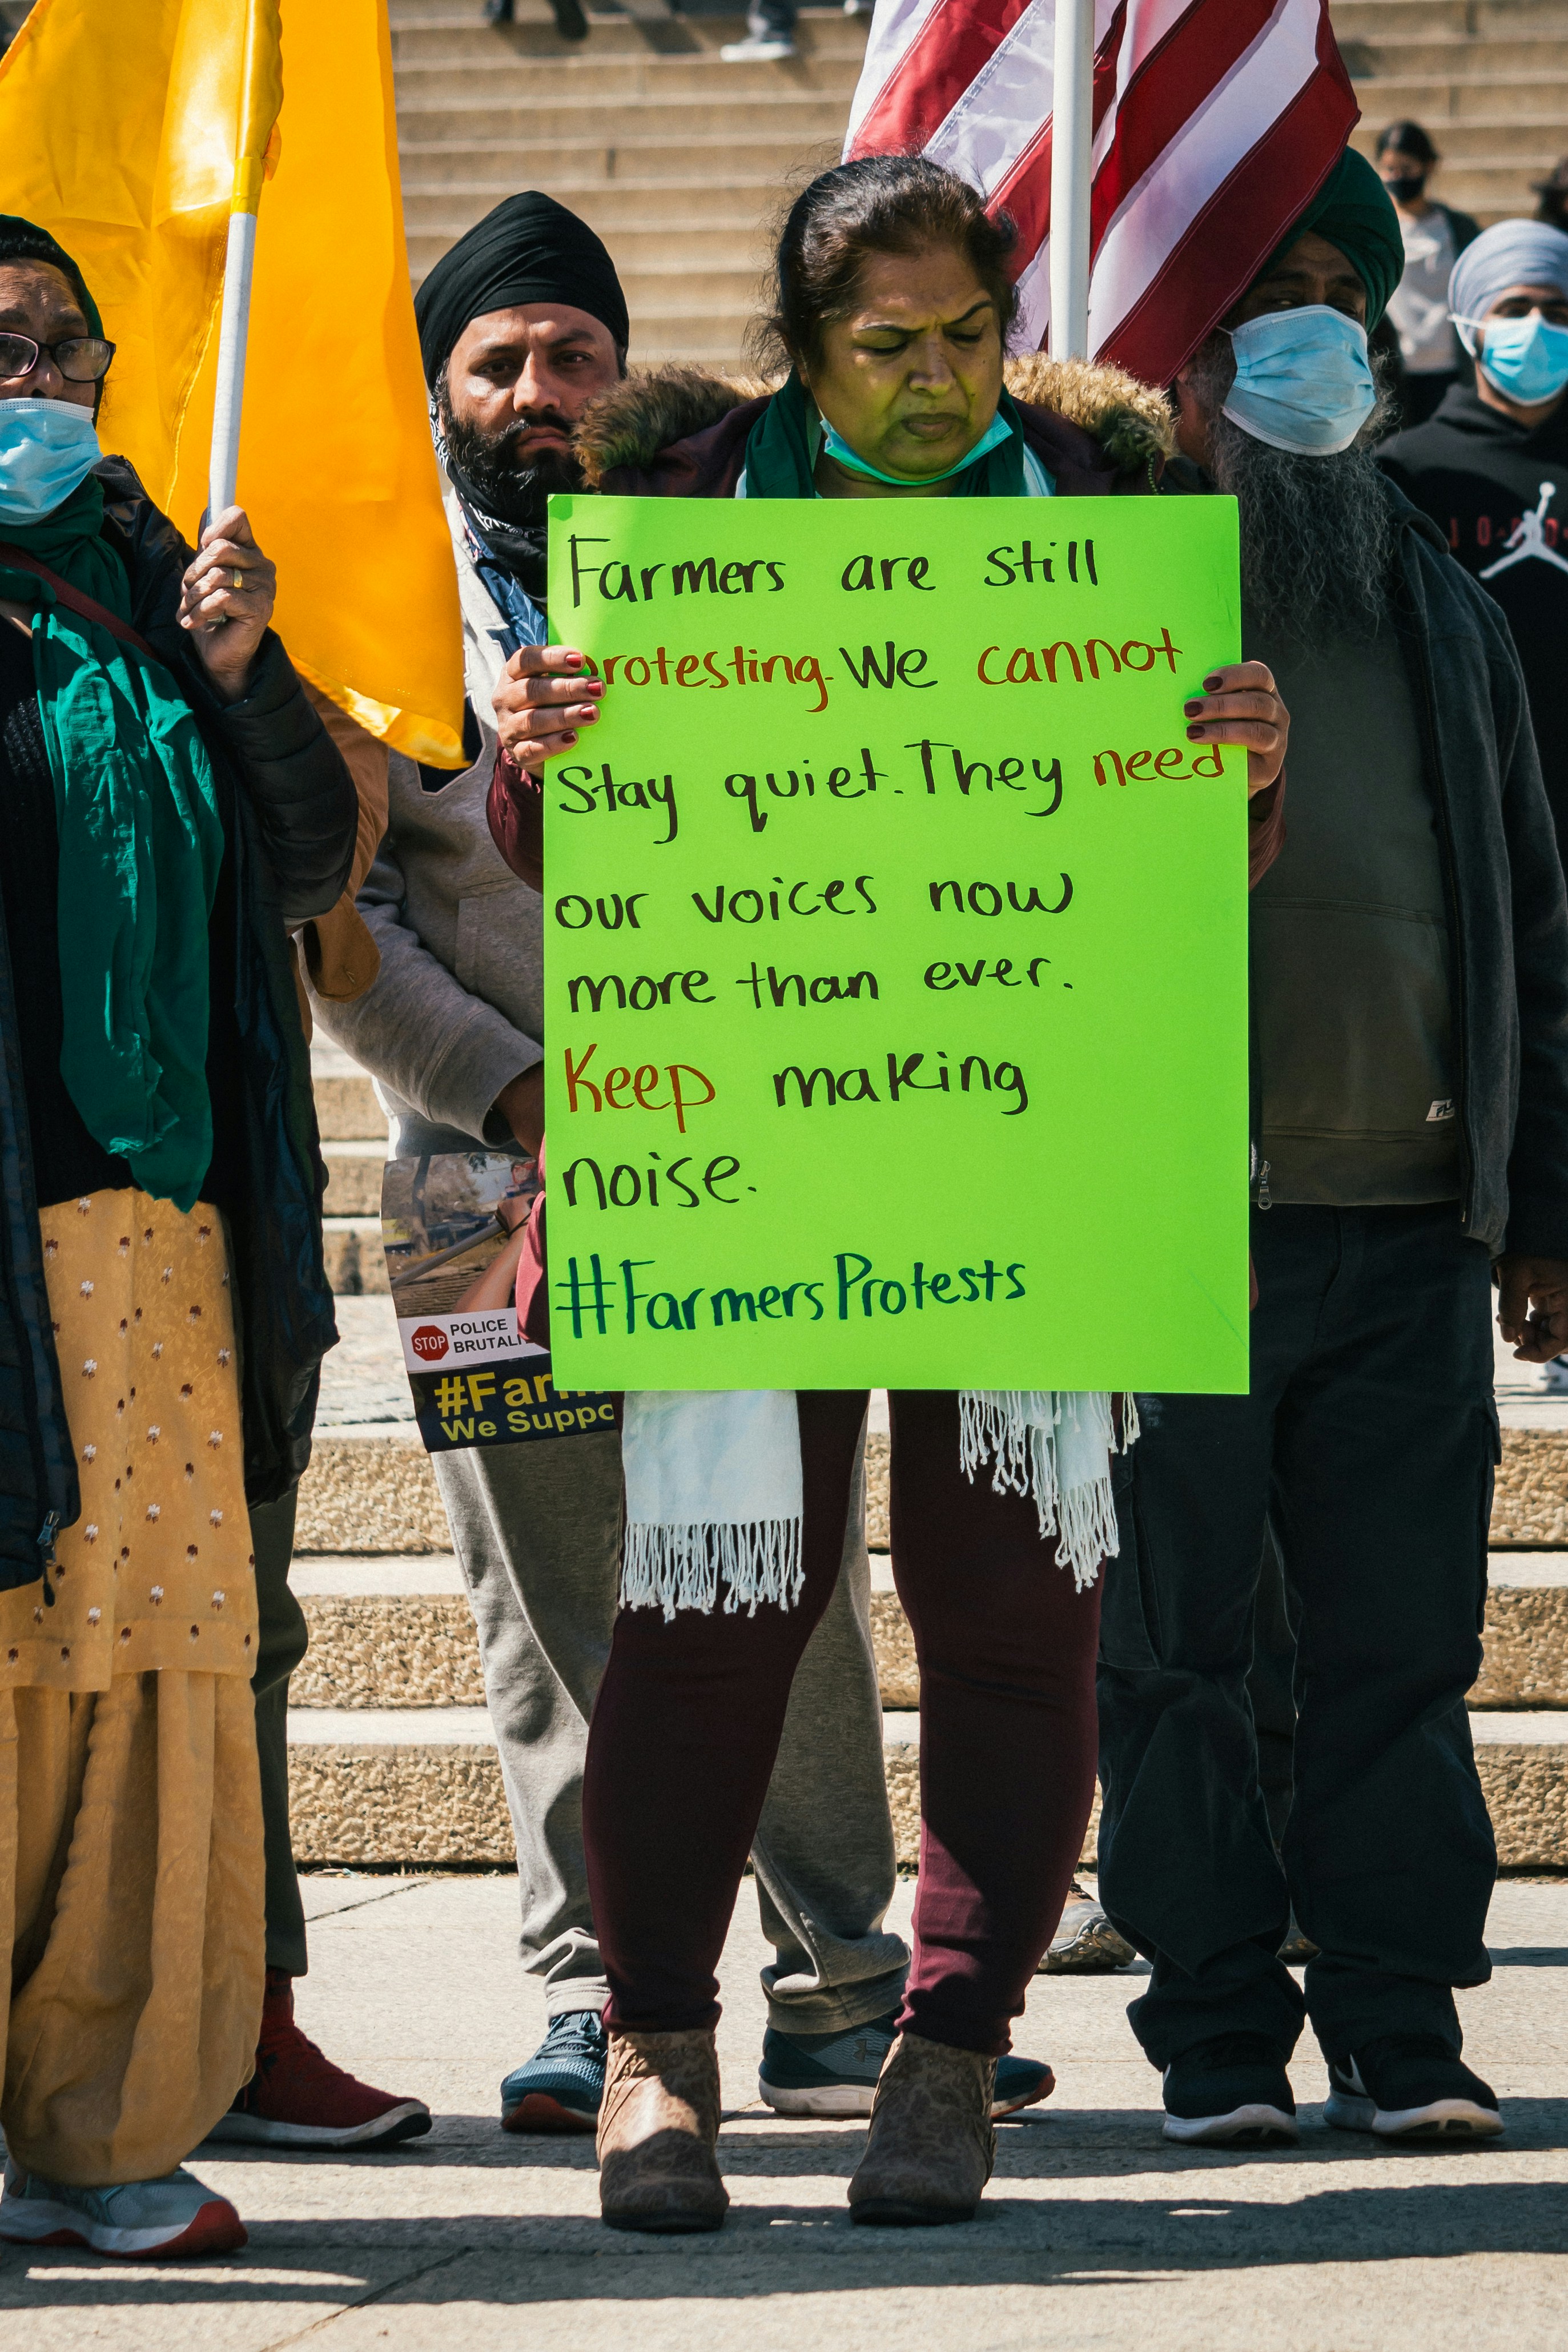 Farmers are still
protesting. We cannot
Stay quiet. They need
our voices now
more than ever.
Keep making
noise.
#FarmersProtests
STOP
POLICE
#Far
We Suppo